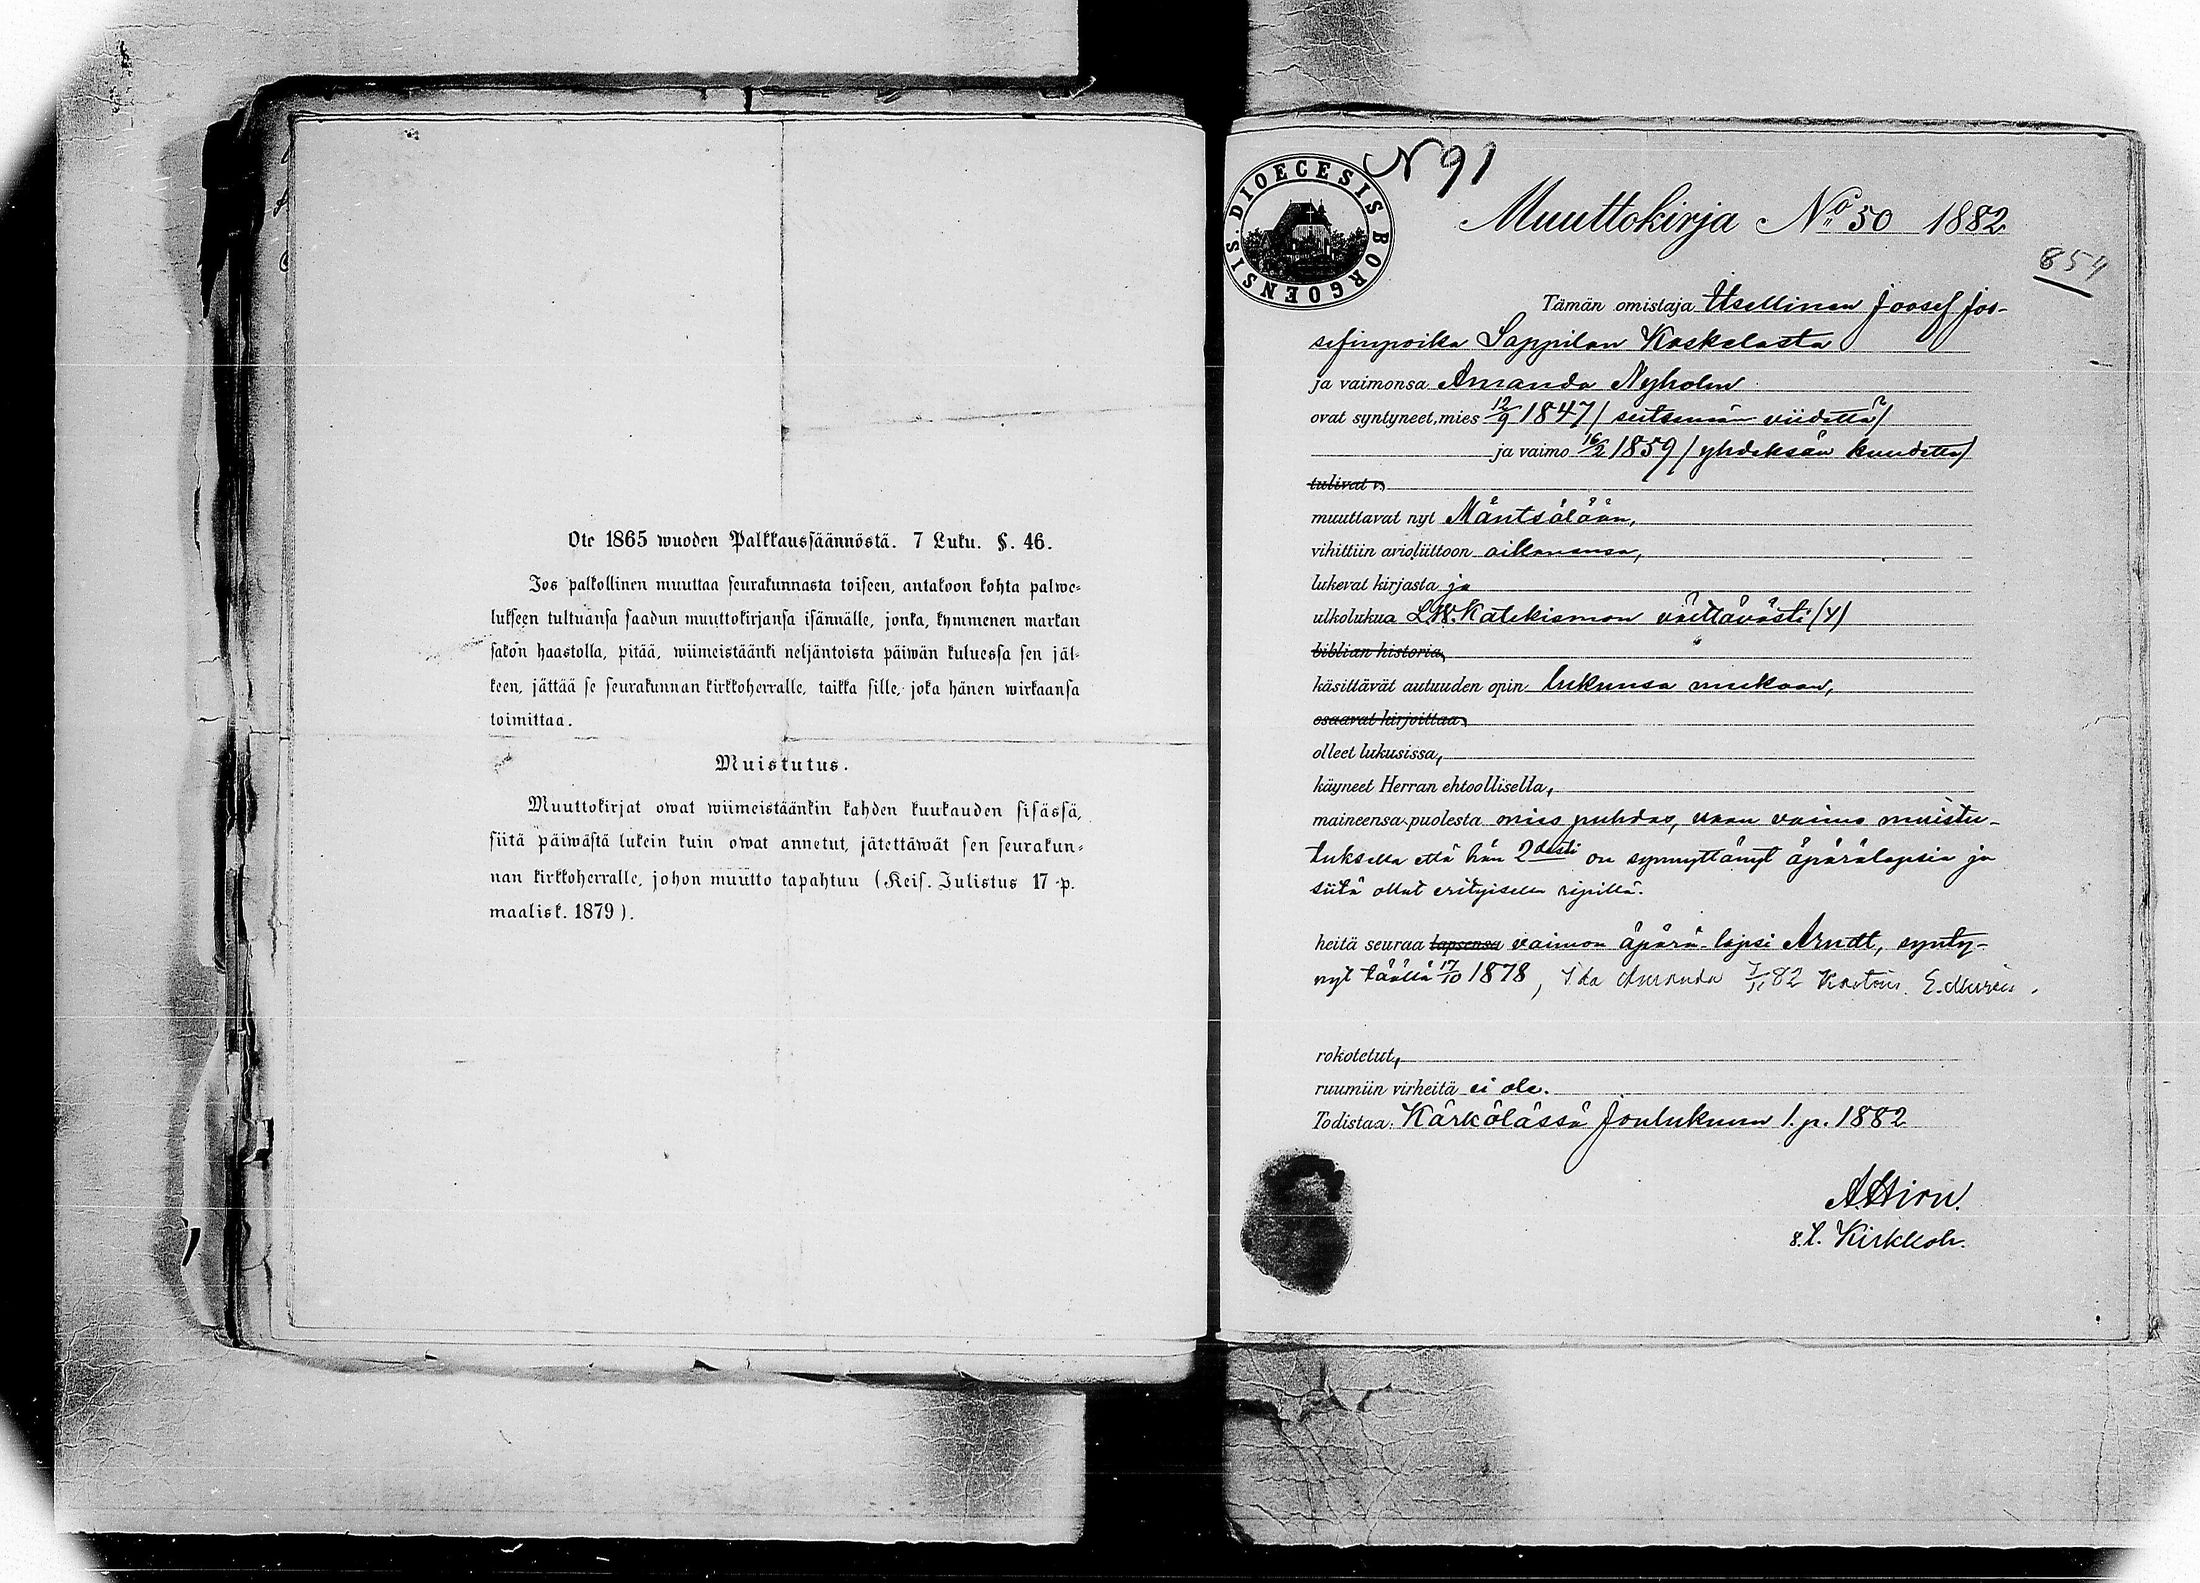 Ote 1865 wuoden Palkkaussäännöstä. 7 Luku. §. 46.
Jos palkollinen muuttaa seurakunnasta toiseen, antakoon kohta palwe-
lukseen tultuansa saadun muuttokirjansa isännälle, jonka, kymmenen markan
sakon haastolla, pitää, wiimeistäänki neljäntoista päiwän kuluessa sen jäl-
keen, jättää se seurakunnan kirkkoherralle, taikka sille, joka hänen wirkaansa
toimittaa.
Muistutus.
Muuttokirjat owat wiimeistäänkin kahden kuukauden sisässä,
siitä päiwästä lukein kuin owat annetut, jätettäwät sen seurakun-
nan kirkkoherralle, johon muutto tapahtuu (Keis. Julistus 17 p.
maalisk. 1879).
N 91
DIOECESIS BORGOENSIS.
Muuttokirja No 50 1882
854
Tämän omistaja Itsellinen Joosef Joo-
sefinpoika Lappilan Koskelasta
ja vaimonsa Amanda Nyholm
ovat syntyneet, mies 12/9 1847 / seitsemän viidettä /
ja vaimo 16/2 1859 / yhdeksän kuudetta /
tulivat v.
muuttavat nyt Mäntsälään,
vihittiin avioliittoon aikanansa,
lukevat kirjasta ja
ulkolukua Katekismon välttävästi (y)
biblian historia,
käsittävät autuuden opin lukunsa mukaan,
osaavat kirjoittaa,
olleet lukusissa,
käyneet Herran ehtoollisella,
maineensa puolesta mies puhdas, vaan vaimo muistu-
tuksella että hän 2desti on synnyttänyt äpärälapsia ja
siitä ollut erityisellä ripillä.
heitä seuraa lapsensa vaimon äpärä-lapsi Arndt, synty-
nyt täällä 17/10 1878, Ida Amanda 82
rokotetut,
ruumiin virheitä ei ole.
Todistaa: Kärkölässä Joulukuun 1. p. 1882
A Hirn.
Kirkkoh.